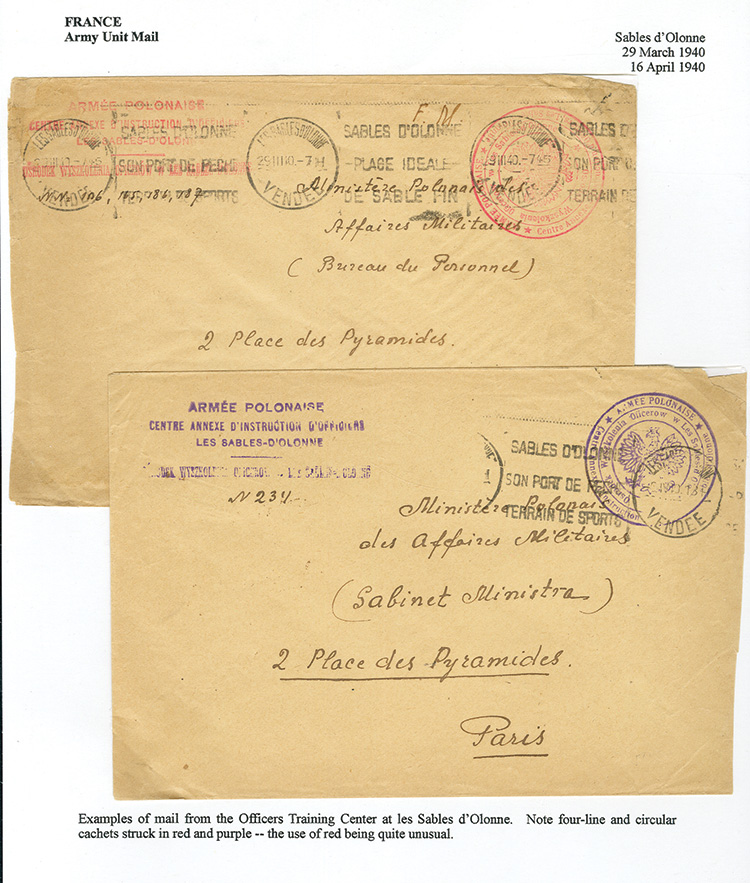 FRANCE
Army Unit Mail
Sables d'Olonne
29 March 1940
16 April 1940
ARMÉE POLONAISE
CENTRE ANNEXE D'INSTRUCTION D'OFFICIERS
LES SABLES-D'OLONNE
WYSZKOLENIA OFICEROW W LES SABLES
LES SABLES D'OLONNE
VENDEE
SABLES D'OLONNE
SON PORT DE PECHE
TERRAIN DE SPORTS
LES SABLES D'OLONNE
29 III 40 - 7 H
VENDEE
SABLES D'OLONNE
-PLAGE IDEALE-
DE SABLE FIN
SABLES D'
SON PORT
TERRAIN DE
ARMÉE POLONAISE
Ministère Polonais des
Affaires Militaires
(Bureau du Personnel)
2 Place des Pyramides.
ARMÉE POLONAISE
CENTRE ANNEXE D'INSTRUCTION D'OFFICIERS
LES SABLES-D'OLONNE
WYSZKOLENIA OFICEROW W LES SABLES OLONNE
N 234
SABLES D'OLONNE
SON PORT DE PECHE
TERRAIN DE SPORTS
VENDEE
ARMÉE POLONAISE
Wyszkolenia Oficerow w Les Sables d'Olonne
Ministère Polonais
des Affaires Militaires
(Gabinet Ministra)
2 Place des Pyramides.
Paris
Examples of mail from the Officers Training Center at les Sables d'Olonne. Note four-line and circular
cachets struck in red and purple -- the use of red being quite unusual.